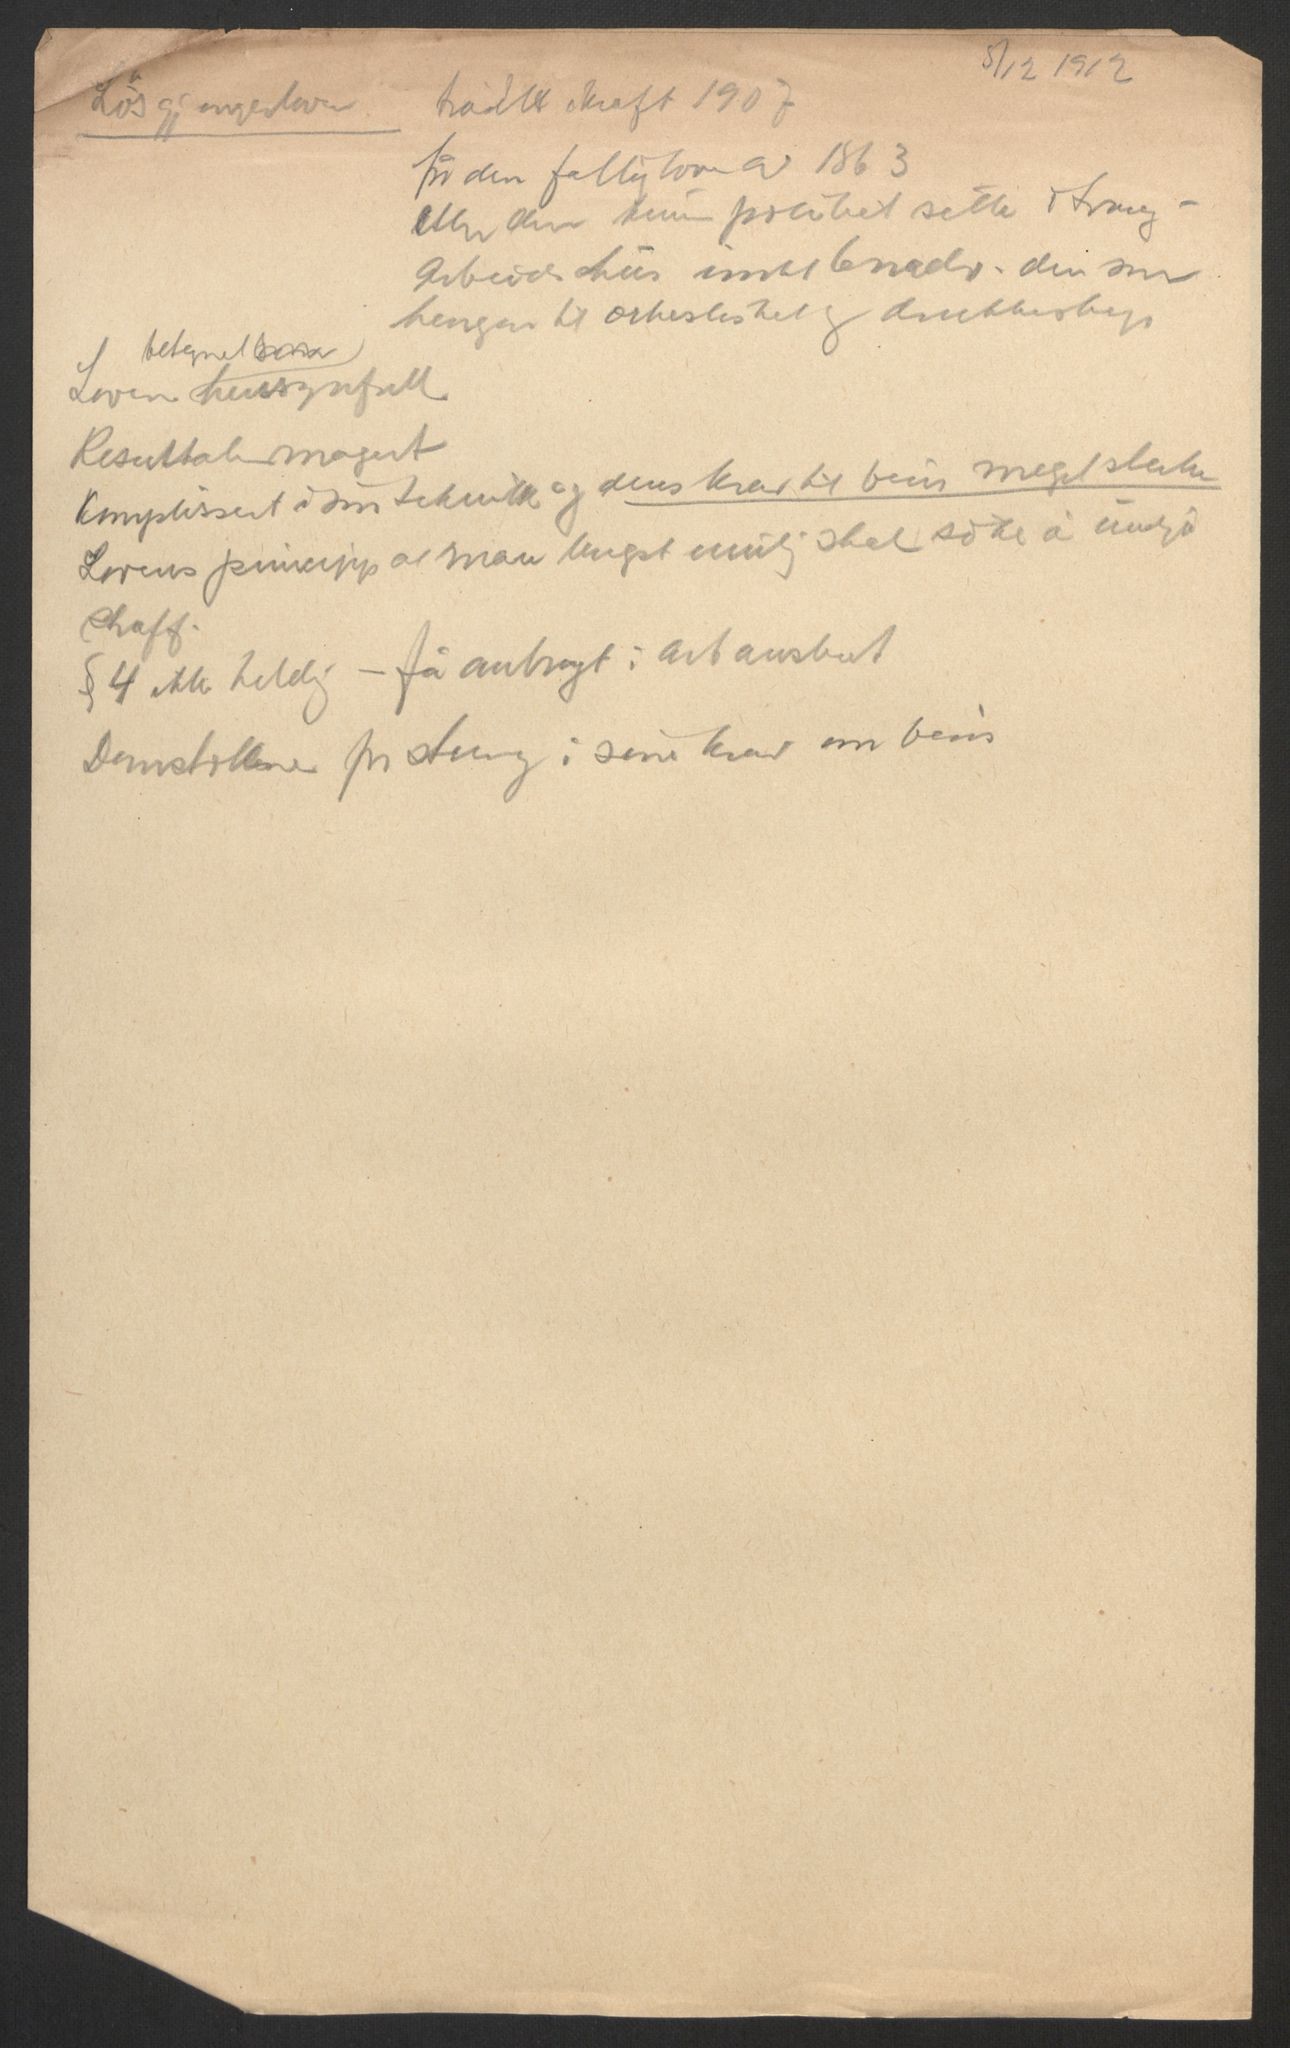 5/12 1912
Løsgjengerloven trådt i kraft 1907
før den fattiglov av 1863
Efter den kunne politiet sette i tvang-
arbeidshus inntil 6 mndr. den som
hengav til ørkesløshet og drukkenskap
betegnet som
Loven hensynsfull
Resultaten magert
Komplissert i sin teknikk og dens krav til bevis meget sterke
Lovens princip at man lengst mulig skal søke å undgå
straff.
§ 4 ikke heldig – få anbragt i arbanstalt
Domstolene for streng i sine krav om bevis